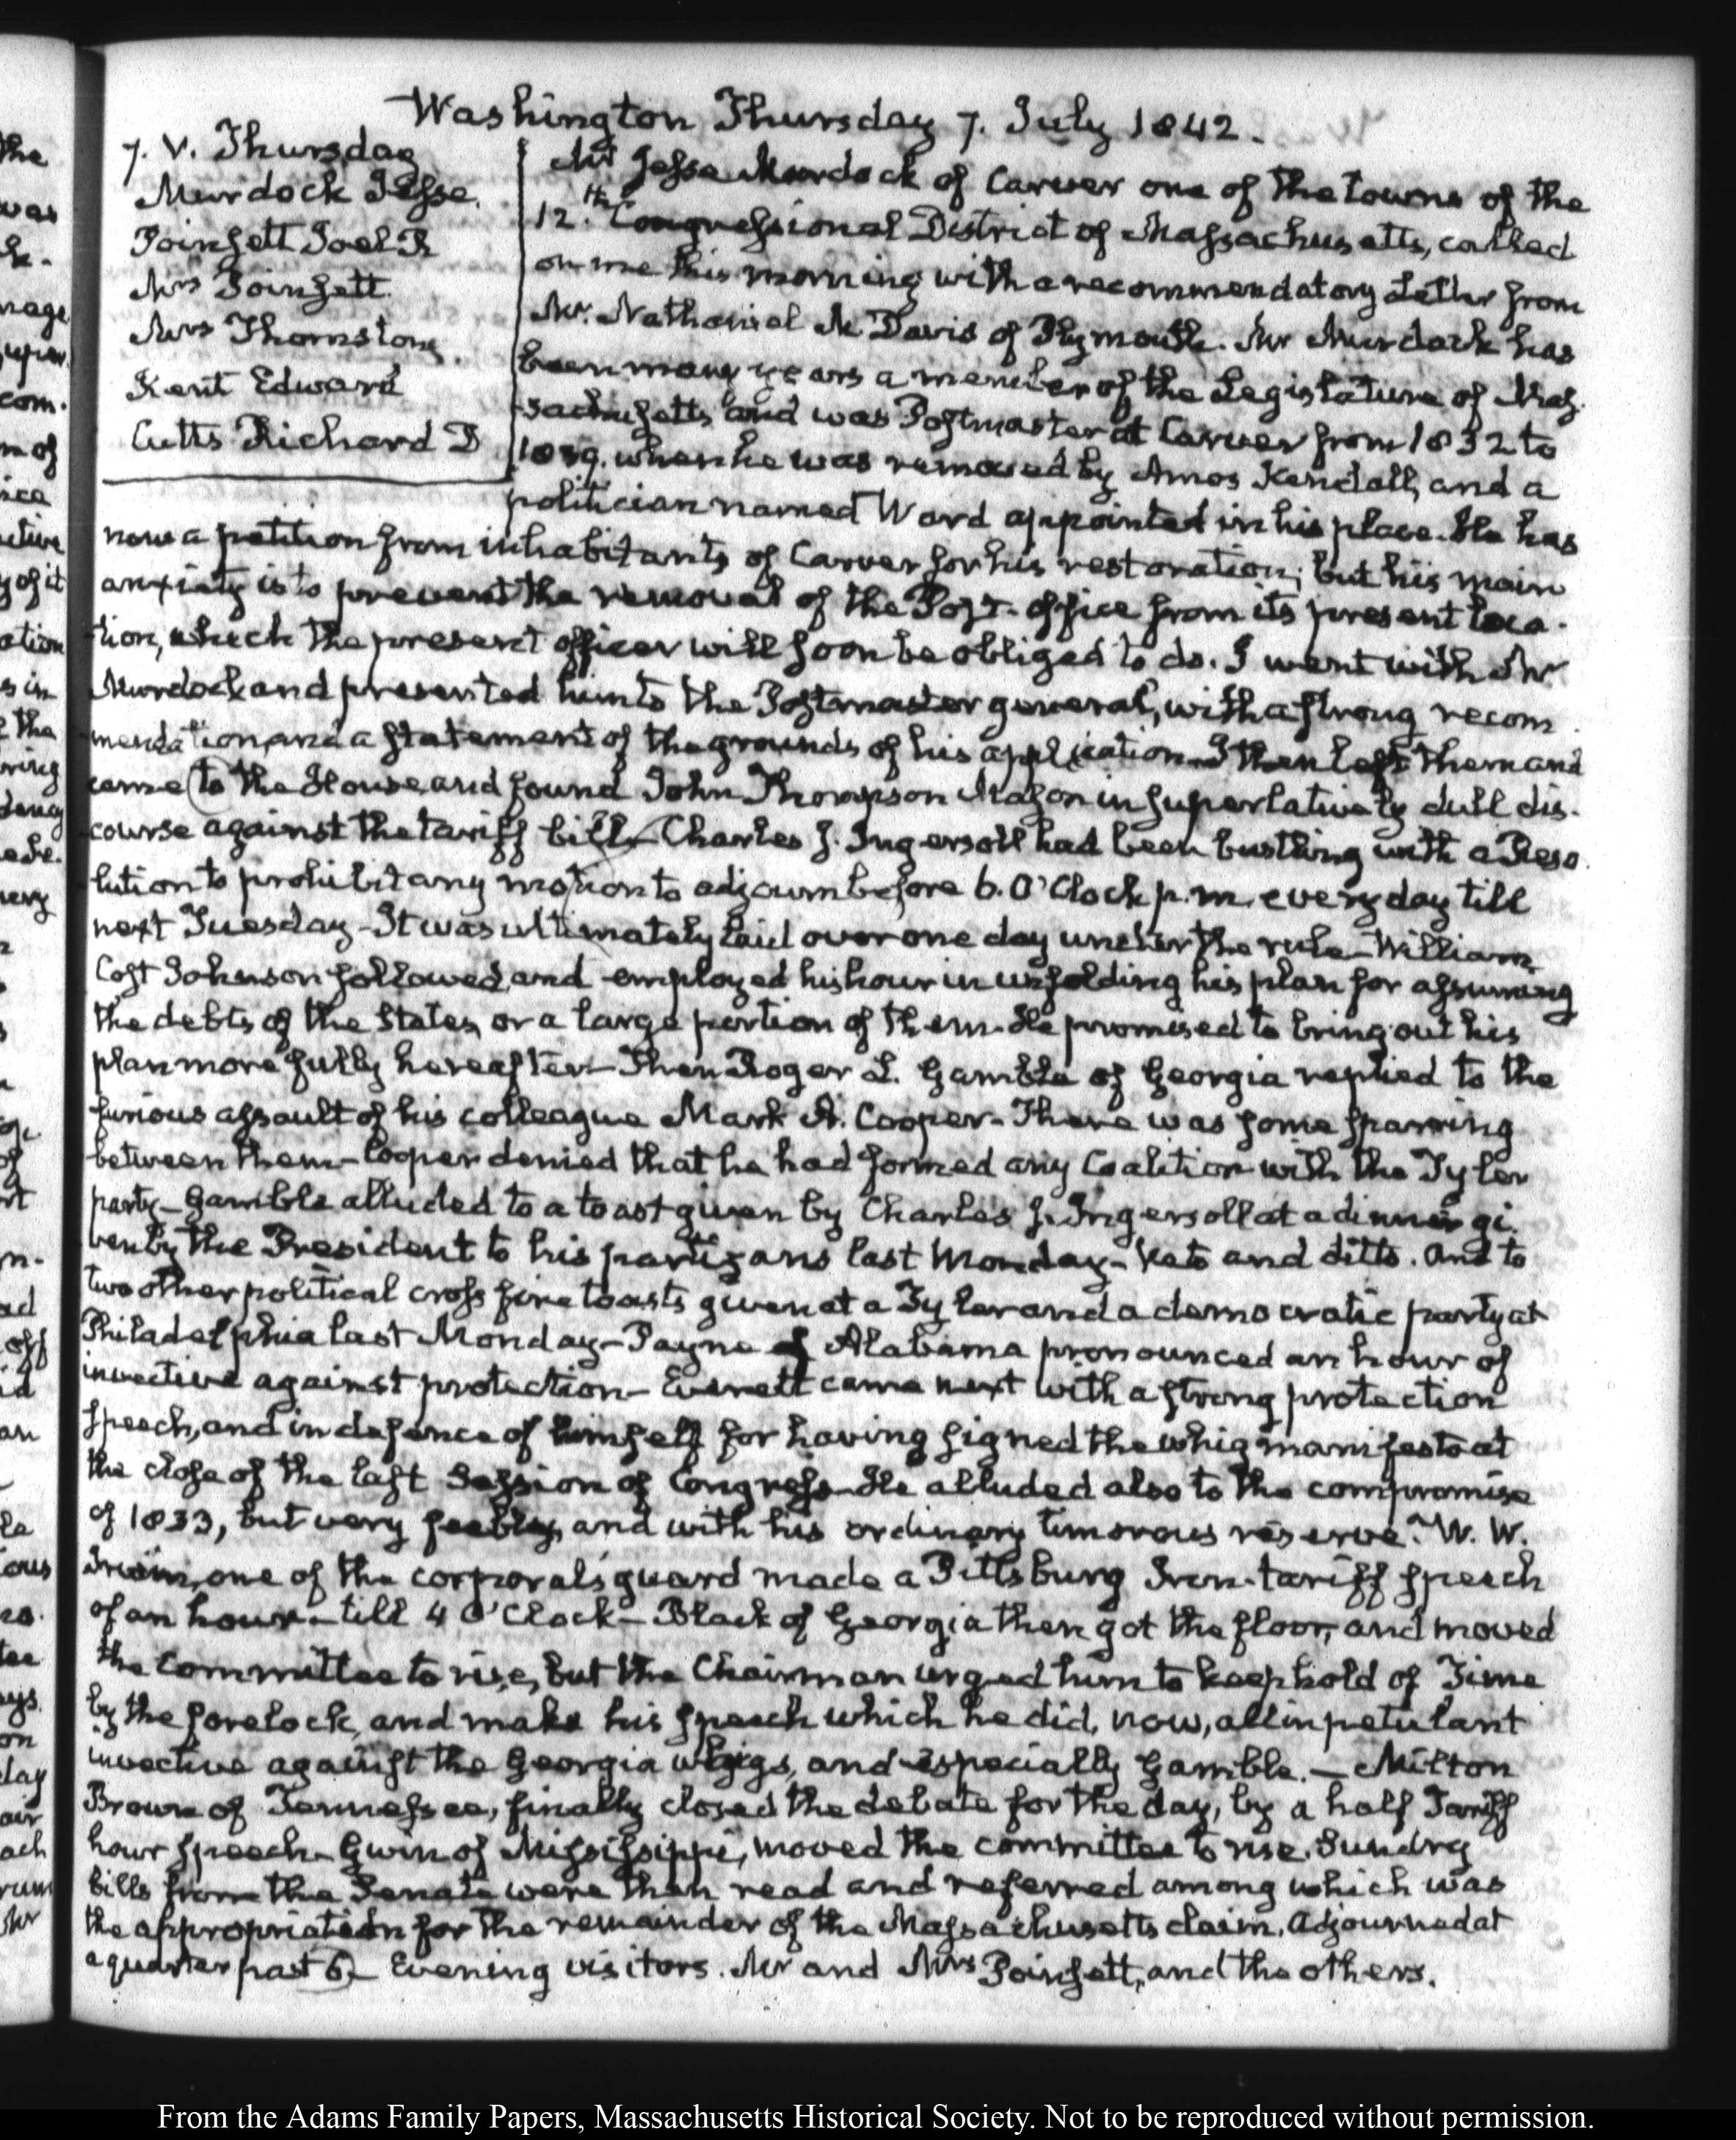 Washington Thursday 7. July 1842.
7. V. Thursday
Murdock Jesse.
Poinsett Joel R
Mrs Poinsett.
Mrs Thornston
Kent Edward
Cutts Richard D
Mr Jesse Murdock of Carver one of the towns of the
12.th Congressional District of Massachusetts, called
on me this morning with a recommendatory Letter from
Mr. Nathaniel M Davis of Plymouth. Mr Murdock has
been many years a member of the Legislature of Mas-
sachusetts and was Postmaster at Carver from 1832 to
1839. when he was removed by Amos Kendall, and a
politician named Ward appointed in his place. He has
now a petition from inhabitants of Carver for his restoration; but his main
anxiety is to prevent the removal of the Post-office from its present loca-
tion, which the present officer will soon be obliged to do. I went with Mr
Murdock and presented him to the Postmaster general, with a strong recom
mendation, and a statement of the grounds of his application. I then left them and
came to the House and found John Thompson Mason in superlatively dull dis-
course against the tariff bill. Charles J. Ingersoll had been bustling with a Reso-
lution to prohibit any motion to adjourn before 6. O'Clock p.m. every day till
next Tuesday - It was ultimately laid over one day under the rule - William
Cost Johnson followed, and employed his hour in unfolding his plan for assuming
the debts of the States, or a large portion of them. He promised to bring out his
plan more fully hereafter - Then Roger L. Gamble of Georgia replied to the
furious assault of his colleague Mark A. Cooper - There was some sparring
between them - Cooper denied that he had formed any Coalition with the Tyler
party - Gamble alluded to a toast given by Charles J. Ingersoll at a dinner gi-
ven by the President to his partizans last Monday - Veto and ditto. And to
two other political cross fire toasts given at a Tyler and a democratic party at
Philadelphia last Monday - Payne of Alabama pronounced an hour of
invective against protection - Everett came next with a strong protection
speech, and in defence of himself for having signed the whig manifesto at
the close of the last Session of Congress - He alluded also to the compromise
of 1833, but very feebly, and with his ordinary timorous reserve. W. W.
Irwin, one of the corporal's guard made a Pittsburg Iron-tariff speech
of an hour - till 4 O'Clock - Black of Georgia then got the floor, and moved
the Committee to rise, but the Chairman urged him to keep hold of Time
by the forelock, and make his speech which he did, now, all in petulant
invective against the Georgia whigs, and especially Gamble. - Milton
Brown of Tennessee, finally closed the debate for the day, by a half Tariff
hour speech - Gwin of Mississippi, moved the committee to rise. Sundry
bills from the Senate were then read and referred among which was
the appropriation for the remainder of the Massachusetts claim. Adjourned at
a quarter past 6 - Evening visitors. Mr and Mrs Poinsett, and the others.
From the Adams Family Papers, Massachusetts Historical Society. Not to be reproduced without permission.